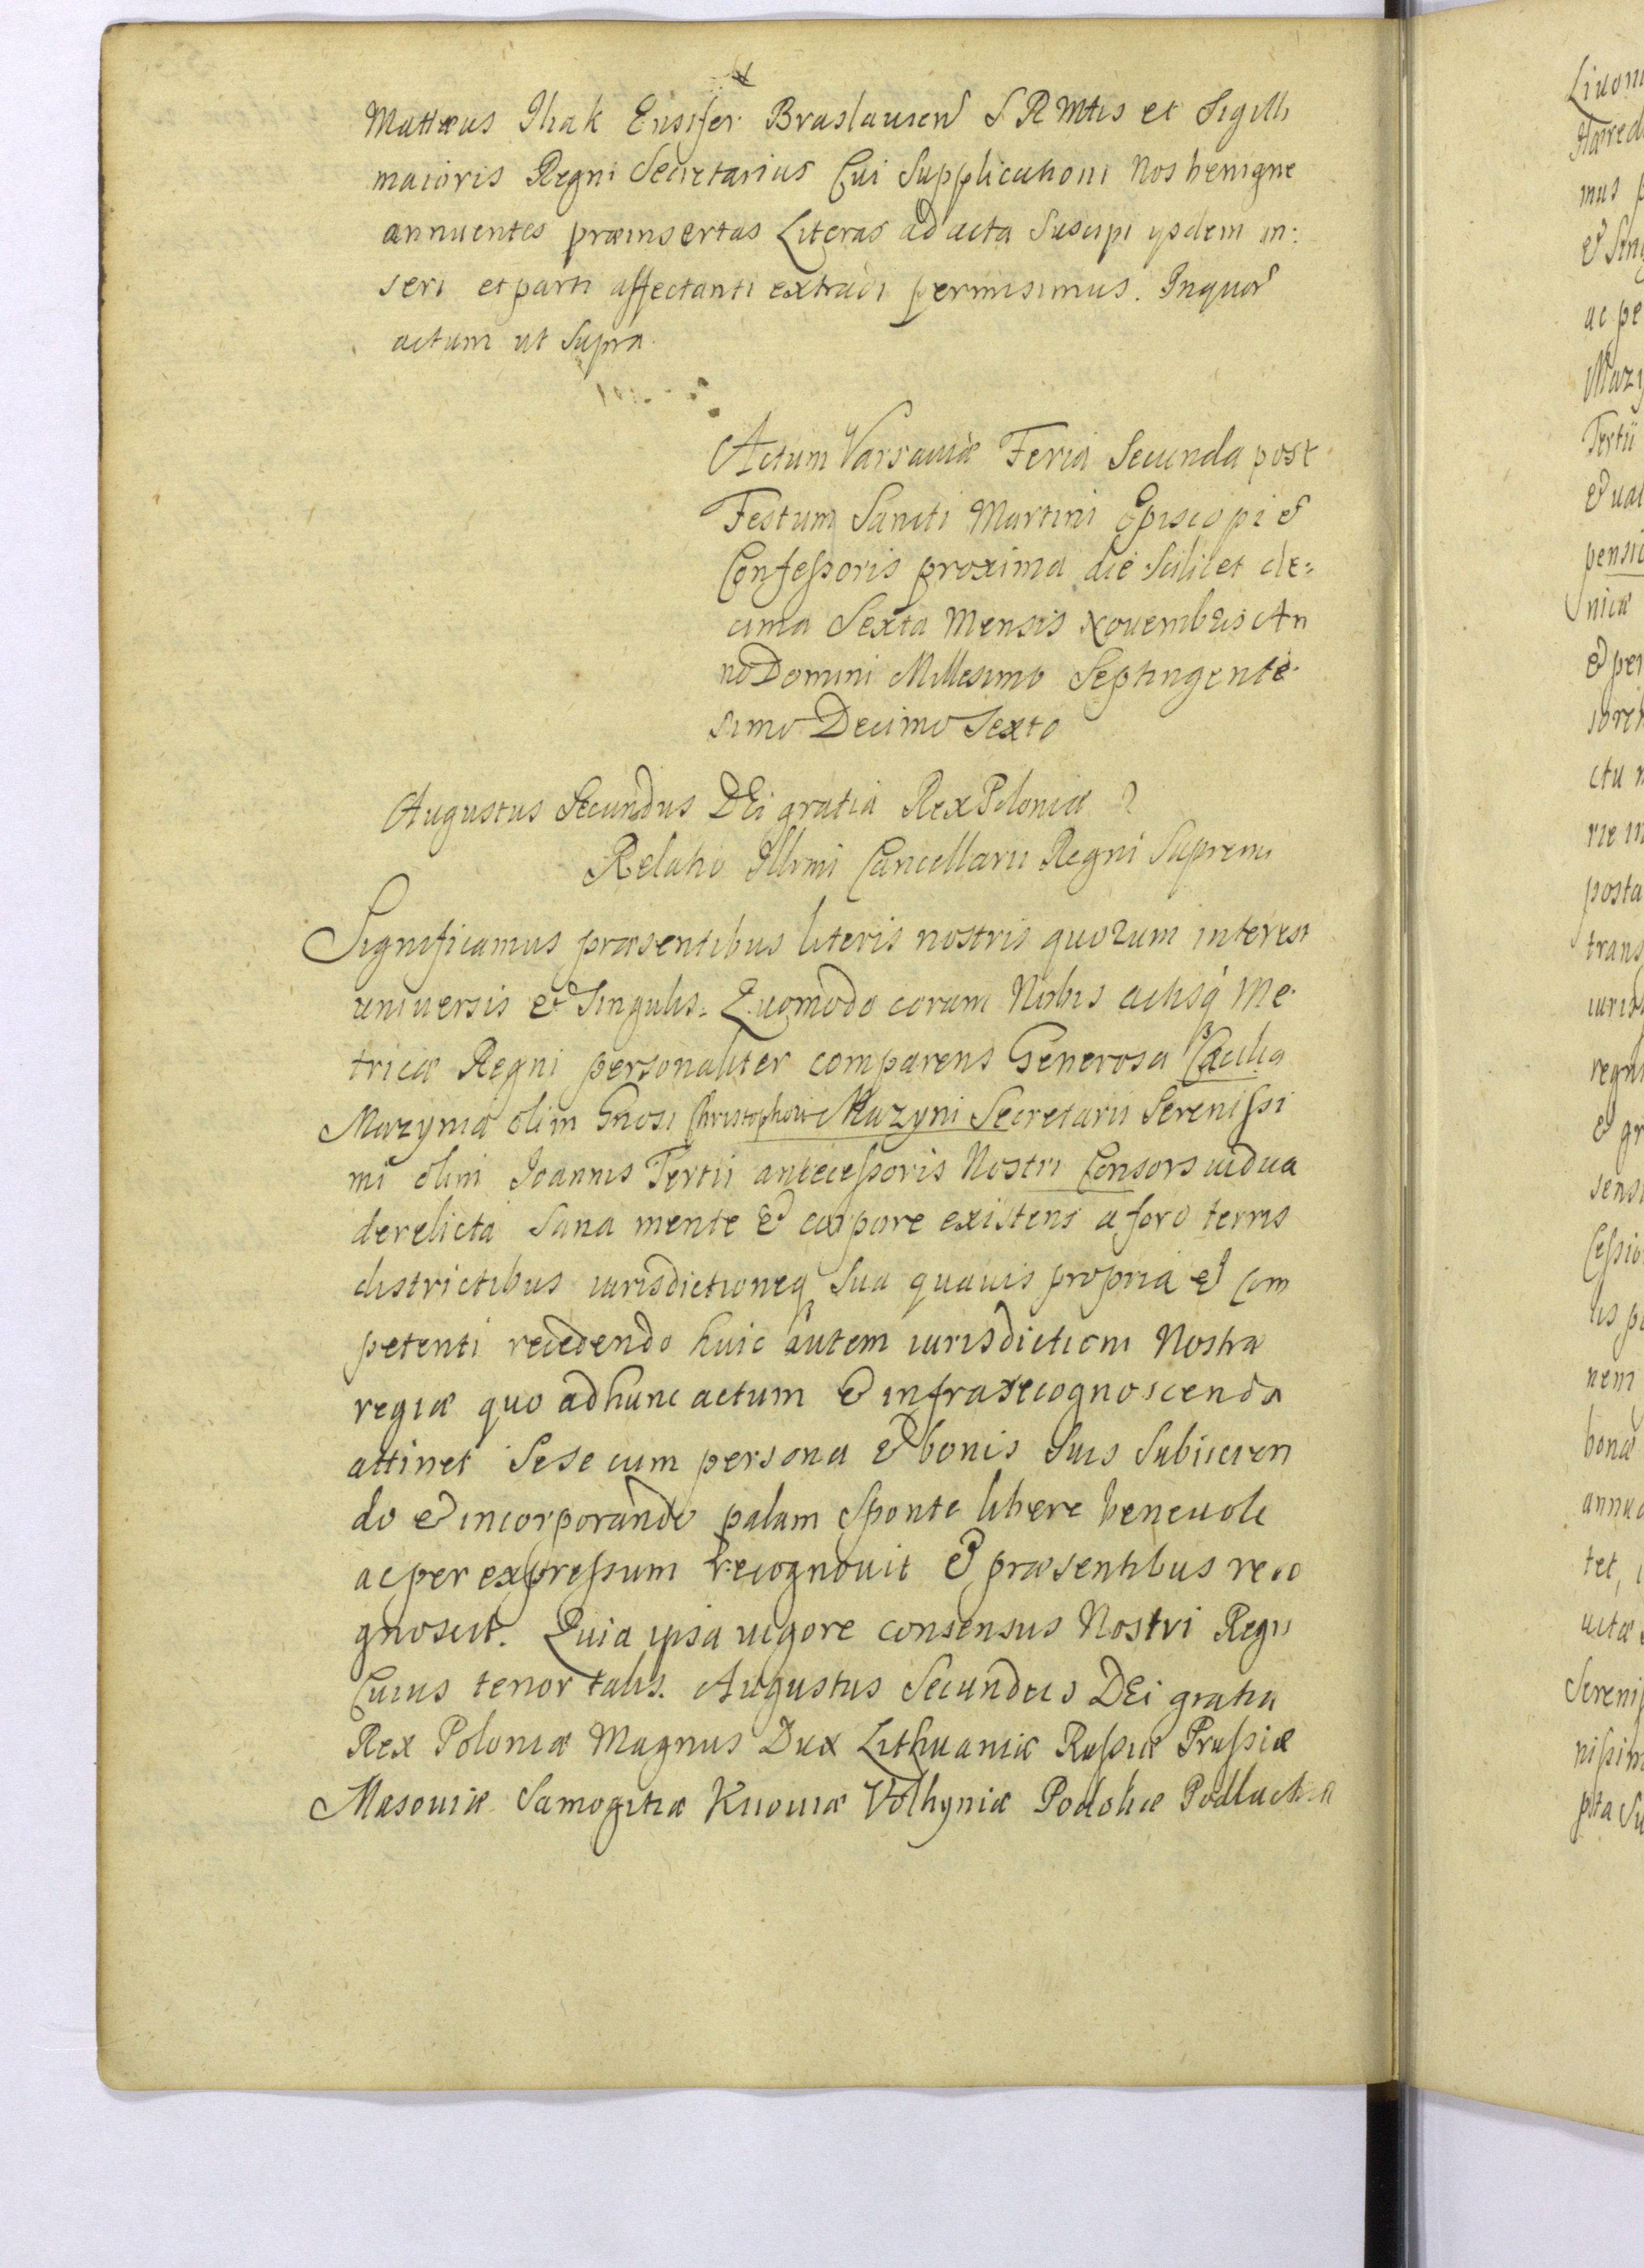 Mattæus Iliak Ensifer Braslavien S R Mtis et Sigilli
maioris Regni Secretarius Cui Supplicationi Nos benigne
annuentes præinsertas Literas ad acta Suscipi ysdem in:
seri et parti affectanti extradi permisimus. In quor
actum ut Supra.
Actum Varsauiæ Feria Secunda post
Festum Sancti Martini Episcopi et
Confessoris proxima die Scilicet de:
cima Sexta Mensis Nouembris An
no Domini Millesimo Septingente
simo Decimo Sexto
Augustus Secundus DEi gratia Rex Poloniæ
Relatio Illmi Cancellarii Regni Supremi
Significamus præsentibus literis nostris quorum interest
uniuersis et Singulis. Quomodo coram Nobis actisq Me
tricæ Regni personaliter comparens Generosa Cæcilia
Mazynia olim Gnosi Christophori Mazyni Secretarii Serenissi
mi olim Joannis Tertii antecessoris Nostri Consors uidua
derelicta Sana mente et corpore existens a foro terris
districtibus iurisdictioneq Sua quauis propria et com
petenti recedendo huic autem iurisdictioni Nostra
regiæ quo ad hunc actum et infrarecognoscenda
attinet Sese cum persona et bonis Suis Subiicien
do et incorporando palam Sponte libere beneuole
ac per expressum recognouit et præsentibus reco
gnoscit. Quia ipsa uigore consensus Nostri Regii
Cuius tenor talis. Augustus Secundus DEi gratia
Rex Poloniæ Magnus Dux Lithuaniæ Russiæ Prussiæ
Masouiæ Samogitiæ Kiiouiæ Volhyniæ Podoliæ Podlachiæ